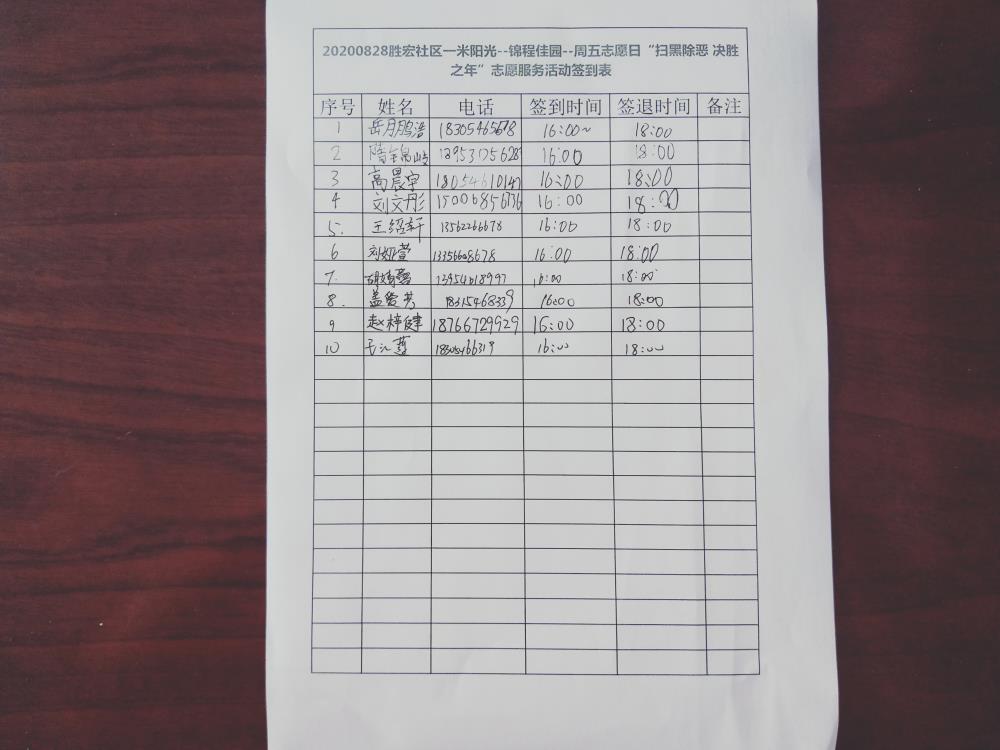 20200828胜宏社区一米阳光--锦程佳园--周五志愿日“扫黑除恶 决胜
之年”志愿服务活动签到表
序号 姓名 电话 签到时间 签退时间 备注
1 岳月鹏浩 18305465678 16:00~ 18:00
2 隋锦屿 16:00 18:00
3 高晨宇 16:00 18:00
4 刘文彤 16:00 18:00
5. 王绍轩 13562266678 16:00 18:00
6 刘娅萱 16:00 18:00
7. 13954618997 16:00 18:00
8. 18315468339 16:00 18:00
9 赵梓健 18766729929 16:00 18:00
10 16:00 18:00